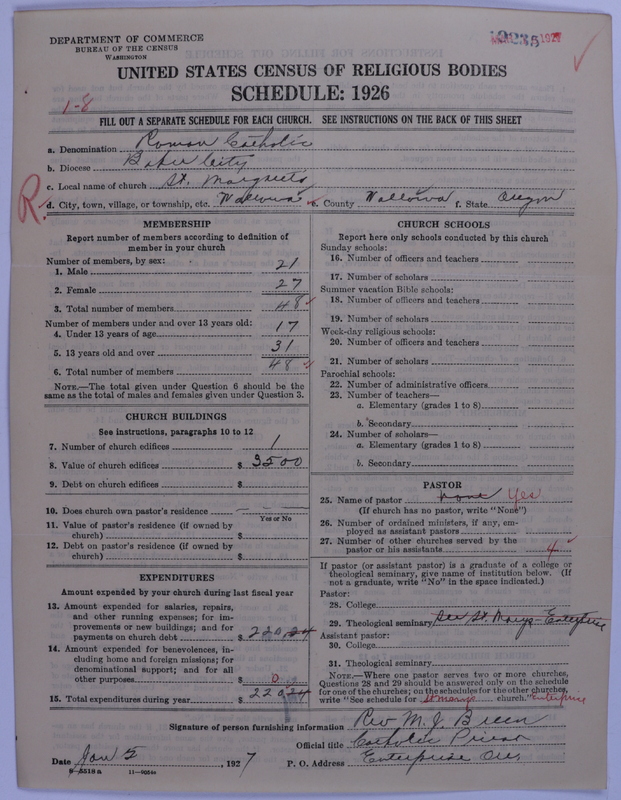 DEPARTMENT OF COMMERCE
BUREAU OF THE CENSUS
WASHINGTON
1927
UNITED STATES CENSUS OF RELIGIOUS BODIES
SCHEDULE: 1926
1-8
FILL OUT A SEPARATE SCHEDULE FOR EACH CHURCH. SEE INSTRUCTIONS ON THE BACK OF THIS SHEET
a. Denomination Roman Catholic
b. Diocese Baker City
c. Local name of church St. Margrets
R. d. City, town, village, or township, etc. Wallowa e. County Wallowa f. State Oregon
MEMBERSHIP
Report number of members according to definition of member in your church
Number of members, by sex:
1. Male 21
2. Female 27
3. Total number of members 48
Number of members under and over 13 years old:
4. Under 13 years of age 17
5. 13 years old and over 31
6. Total number of members 48
NOTE.—The total given under Question 6 should be the
same as the total of males and females given under Question 3.
CHURCH BUILDINGS
See instructions, paragraphs 10 to 12
7. Number of church edifices 1
8. Value of church edifices $ 3500
9. Debt on church edifices $
10. Does church own pastor's residence
Yes or No
11. Value of pastor's residence (if owned by
church) $
12. Debt on pastor's residence (if owned by
church) $
EXPENDITURES
Amount expended by your church during last fiscal year
13. Amount expended for salaries, repairs,
and other running expenses; for im-
provements or new buildings; and for
payments on church debt $ 220,24
14. Amount expended for benevolences, in-
cluding home and foreign missions; for
denominational support; and for all
other purposes $ 0
15. Total expenditures during year $ 220,24
CHURCH SCHOOLS
Report here only schools conducted by this church
Sunday schools:
16. Number of officers and teachers
17. Number of scholars
Summer vacation Bible schools:
18. Number of officers and teachers
19. Number of scholars
Week-day religious schools:
20. Number of officers and teachers
21. Number of scholars
Parochial schools:
22. Number of administrative officers
23. Number of teachers—
a. Elementary (grades 1 to 8)
b. Secondary
24. Number of scholars—
a. Elementary (grades 1 to 8)
b. Secondary
PASTOR
25. Name of pastor none Yes
(If church has no pastor, write "None")
26. Number of ordained ministers, if any, em-
ployed as assistant pastors
27. Number of other churches served by the
pastor or his assistants 4
If pastor (or assistant pastor) is a graduate of a college or
theological seminary, give name of institution below. (If
not a graduate, write "No" in the space indicated.)
Pastor:
28. College
29. Theological seminary See St. Marys - Enterprise
Assistant pastor:
30. College
31. Theological seminary
NOTE.—Where one pastor serves two or more churches,
Questions 28 and 29 should be answered only on the schedule
for one of the churches; on the schedules for the other churches,
write "See schedule for St marys church." Enterprise
Signature of person furnishing information Rev M. J. Breen
Official title Catholic Priest
Date Jan 5, 1927 P. O. Address Enterprise Ore,
8—5518 a 11—9054a